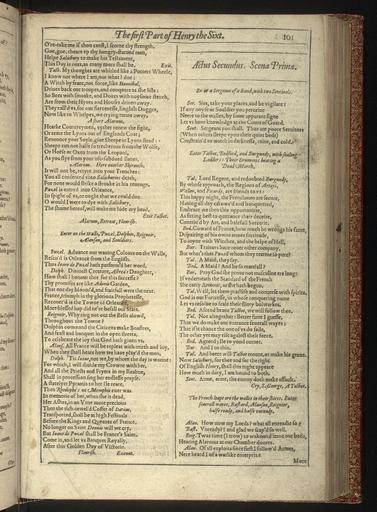 The first Part of Henry the Sixt. 101
O're-take me if thou canst, I scorne thy strength.
Goe, goe, cheare vp thy hungry-starued men,
Helpe Salisbury to make his Testament,
This Day is ours, as many more shall be. Exit.
Talb. My thoughts are whirled like a Potters Wheele,
I know not where I am, nor what I doe:
A Witch by feare, not force, like Hannibal,
Driues back our troupes, and conquers as she lists:
So Bees with smoake, and Doues with noysome stench,
Are from their Hyues and Houses driuen away.
They call'd vs, for our fiercenesse, English Dogges,
Now like to Whelpes, we crying runne away.
A short Alarum.
Hearke Countreymen, eyther renew the fight,
Or teare the Lyons out of Englands Coat;
Renounce your Soyle, giue Sheepe in Lyons stead:
Sheepe run not halfe so trecherous from the Wolfe,
Or Horse or Oxen from the Leopard,
As you flye from your oft-subdued slaues.
Alarum. Here another Skirmish.
It will not be, retyre into your Trenches:
You all consented vnto Salisburies death,
For none would strike a stroake in his reuenge.
Puzel is entred into Orleance,
In spight of vs, or ought that we could doe.
O would I were to dye with Salisbury,
The shame hereof, will make me hide my head.
Exit Talbot.
Alarum, Retreat, Flourish.
Enter on the Walls, Puzel, Dolphin, Reigneir,
Alanson, and Souldiers.
Puzel. Aduance our wauing Colours on the Walls,
Rescu'd is Orleance from the English.
Thus Ioane de Puzel hath perform'd her word.
Dolph. Diuinest Creature, Astrea's Daughter,
How shall I honour thee for this successe?
Thy promises are like Adonis Garden,
That one day bloom'd, and fruitfull were the next.
France, triumph in thy glorious Prophetesse,
Recouer'd is the Towne of Orleance,
More blessed hap did ne're befall our State.
Reigneir. Why ring not out the Bells alowd,
Throughout the Towne?
Dolphin command the Citizens make Bonfires,
And feast and banquet in the open streets,
To celebrate the ioy that God hath giuen vs.
Alans. All France will be repleat with mirth and ioy,
When they shall heare how we haue play'd the men.
Dolph. 'Tis Ioane, not we, by whom the day is wonne:
For which, I will diuide my Crowne with her,
And all the Priests and Fryers in my Realme,
Shall in procession sing her endlesse prayse.
A statelyer Pyramis to her Ile reare,
Then Rhodophe's or Memphis euer was.
In memorie of her, when she is dead,
Her Ashes, in an Vrne more precious
Then the rich-iewel'd Coffer of Darius,
Transported, shall be at high Festiuals
Before the Kings and Queenes of France.
No longer on Saint Dennis will we cry,
But Ioane de Puzel shall be France's Saint.
Come in, and let vs Banquet Royally,
After this Golden Day of Victorie.
Flourish. Exeunt.
Actus Secundus. Scena Prima.
Enter a Sergeant of a Band, with two Sentinels.
Ser. Sirs, take your places, and be vigilant:
If any noyse or Souldier you perceiue
Neere to the walles, by some apparant signe
Let vs haue knowledge at the Court of Guard.
Sent. Sergeant you shall. Thus are poore Seruitors
(When others sleepe vpon their quiet beds)
Constrain'd to watch in darknesse, raine, and cold.
Enter Talbot, Bedford, and Burgundy, with scaling
Ladders: Their Drummes beating a
Dead March.
Tal. Lord Regent, and redoubted Burgundy,
By whose approach, the Regions of Artoys,
Wallon, and Picardy, are friends to vs:
This happy night, the Frenchmen are secure,
Hauing all day carows'd and banquetted,
Embrace we then this opportunitie,
As fitting best to quittance their deceite,
Contriu'd by Art, and balefull Sorcerie.
Bed. Coward of France, how much he wrongs his fame,
Dispairing of his owne armes fortitude,
To ioyne with Witches, and the helpe of Hell.
Bur. Traitors haue neuer other company.
But what's that Puzell whom they tearme so pure?
Tal. A Maid, they say.
Bed. A Maid? And be so martiall?
Bur. Pray God she proue not masculine ere long:
If vnderneath the Standard of the French
She carry Armour, as she hath begun.
Tal. Well, let them practise and conuerse with spirits.
God is our Fortresse, in whose conquering name
Let vs resolue to scale their flinty bulwarkes.
Bed. Ascend braue Talbot, we will follow thee.
Tal. Not altogether: Better farre I guesse,
That we do make our entrance seuerall wayes:
That if it chance the one of vs do faile,
The other yet may rise against their force.
Bed. Agreed; Ile to yond corner.
Bur. And I to this.
Tal. And heere will Talbot mount, or make his graue.
Now Salisbury, for thee and for the right
Of English Henry, shall this night appeare
How much in duty, I am bound to both.
Sent. Arme, arme, the enemy doth make assault.
Cry, S. George, A Talbot.
The French leape ore the walles in their shirts. Enter
seuerall wayes, Bastard, Alanson, Reignier,
halfe ready, and halfe vnready.
Alan. How now my Lords? what all vnreadie so?
Bast. Vnready? I and glad we scap'd so well.
Reig. 'Twas time (I trow) to wake and leaue our beds,
Hearing Alarums at our Chamber doores.
Alan. Of all exploits since first I follow'd Armes,
Nere heard I of a warlike enterprize
More